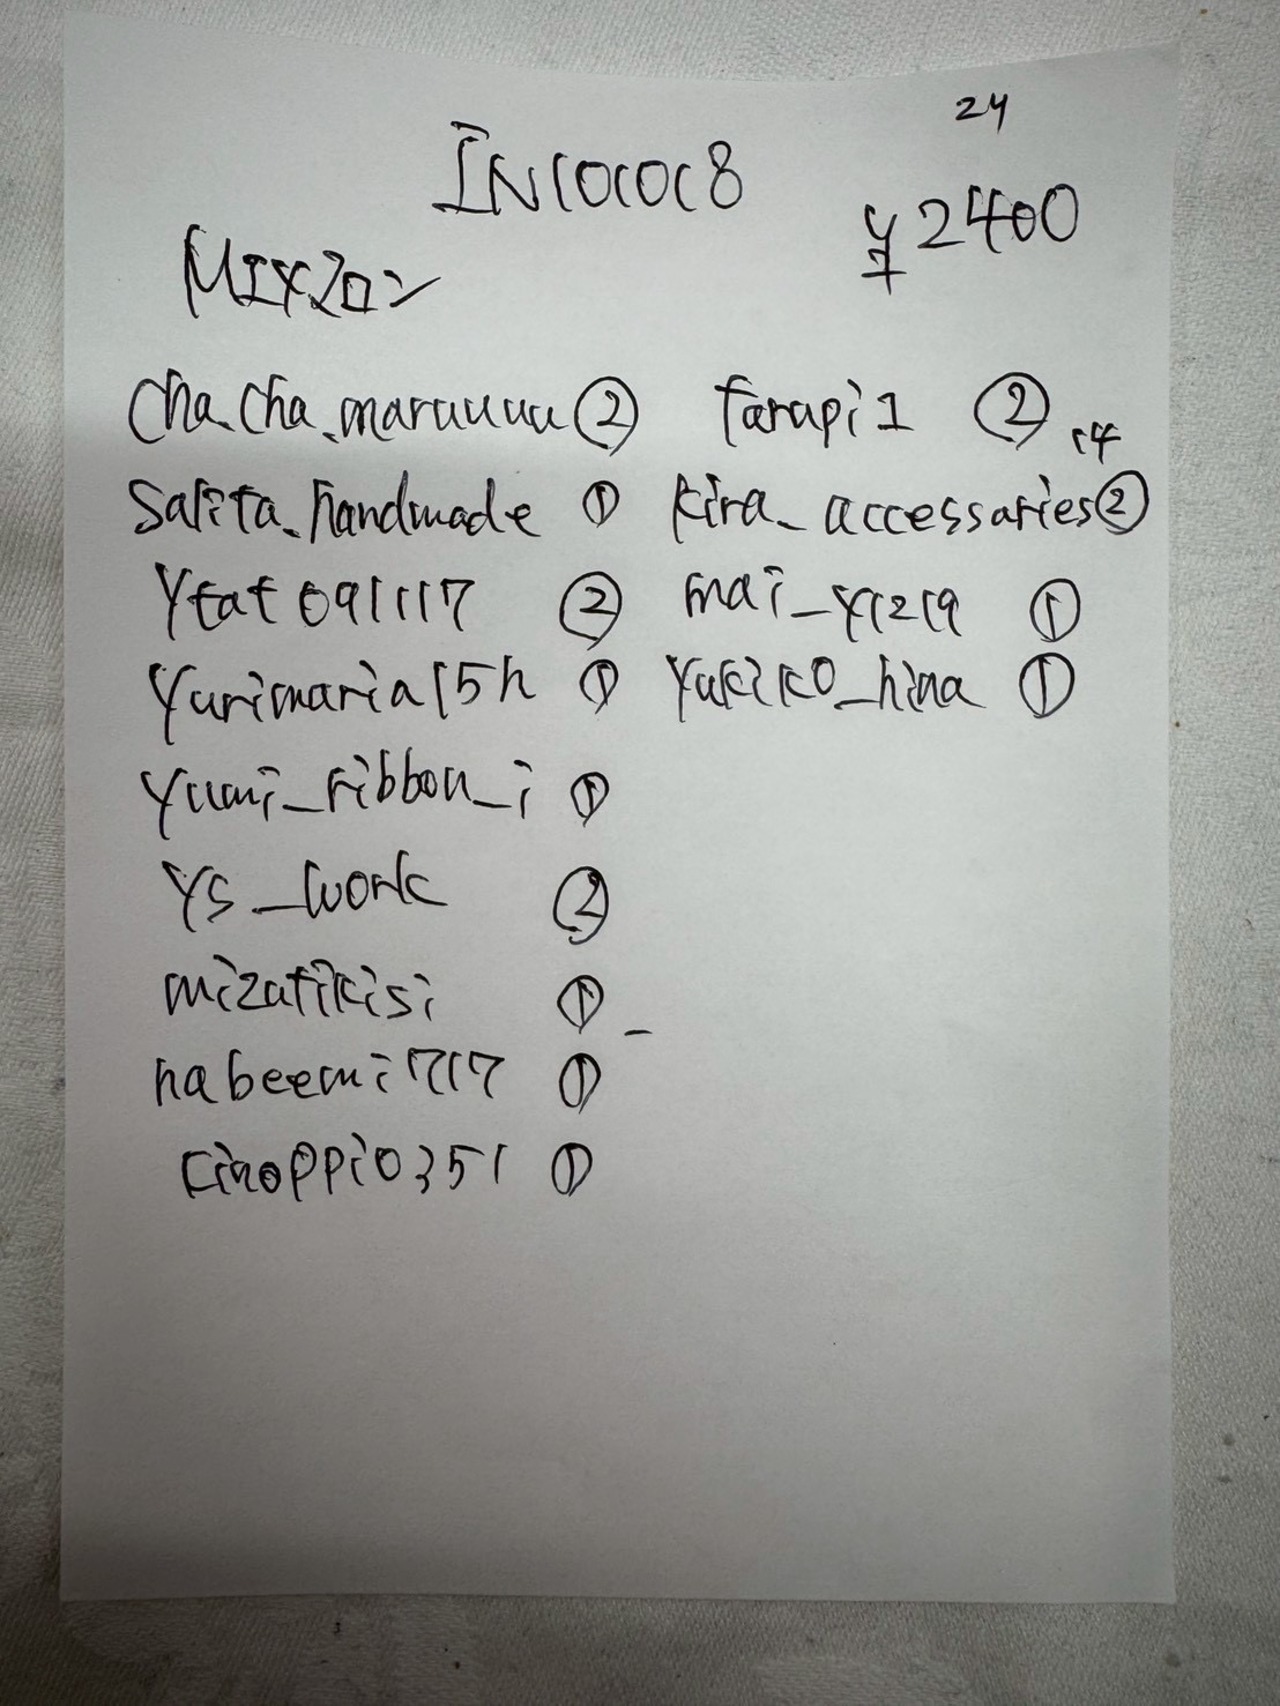 24
IN101018
¥2400
MIX20ン
cha.cha.maruuuu ②
Salita_handmade ①
Ytat091117 ②
Yurimaria15h ①
Yumi_ribbon_i ①
YS_work ②
mizatikisi ①
nabeemi717 ①
kinoppi0351 ①
farapi1 ②
14
kira_accessaries ②
mai_y1219 ①
Yukiko_hina ①